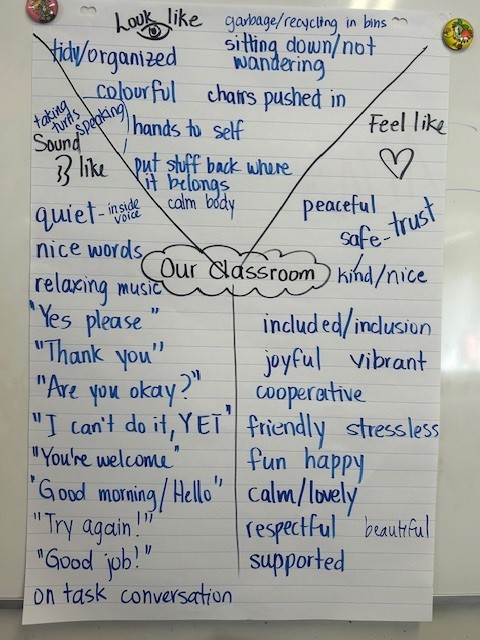 Look like
garbage/recycling in bins
tidy/organized
sitting down/not
wandering
colourful
chairs pushed in
hands to self
put stuff back where
it belongs
calm body
taking
turns
speaking
Sound
like
quiet - inside
voice
nice words
relaxing music
"Yes please"
"Thank you"
"Are you okay?"
"I can't do it, YET"
"You're welcome"
"Good morning/Hello"
"Try again!"
"Good job!"
on task conversation
Our Classroom
Feel like
peaceful
safe - trust
kind/nice
included/inclusion
joyful vibrant
cooperative
friendly stressless
fun happy
calm/lovely
respectful beautiful
supported